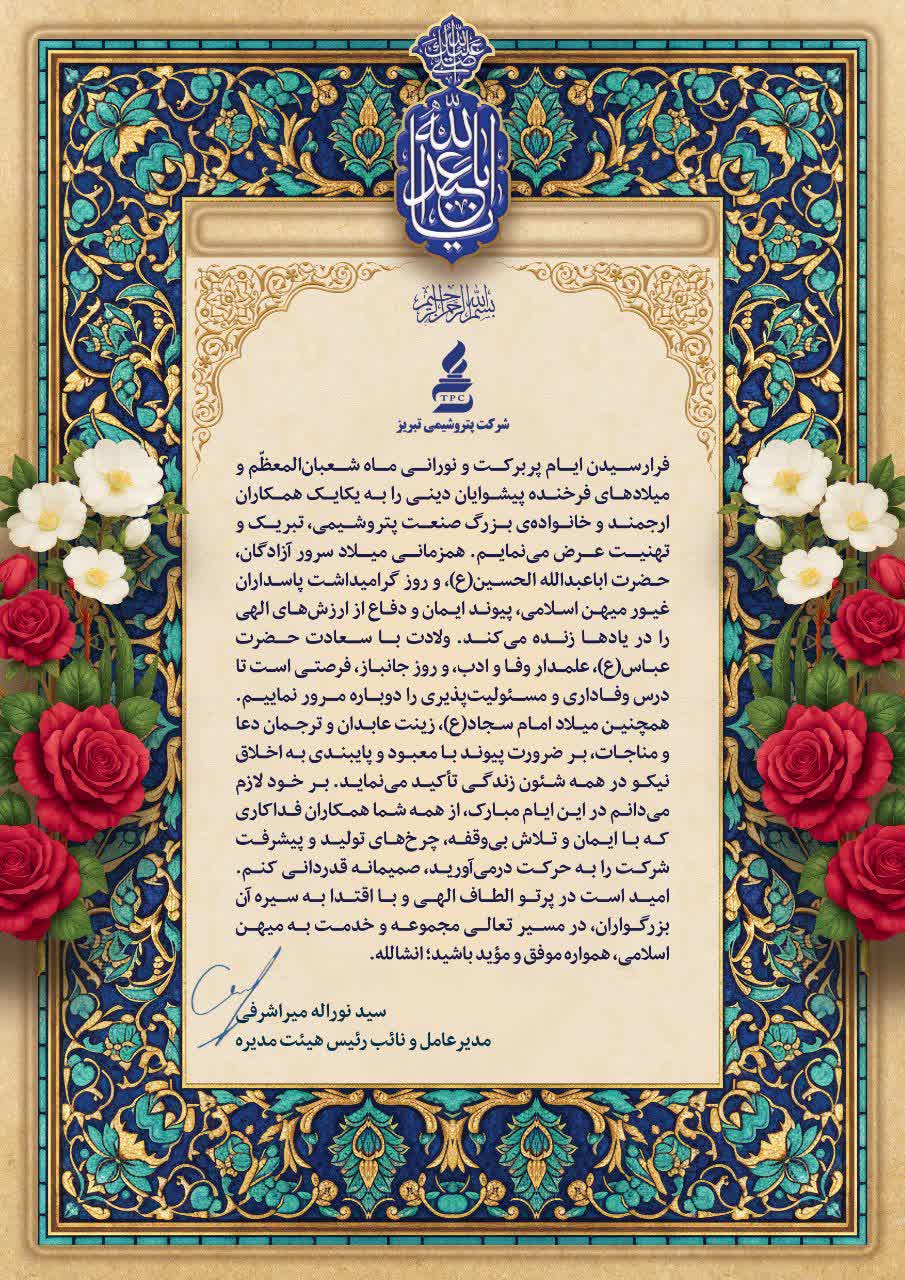 صلی الله علیک
یا اباعبدالله
بسم الله الرحمن الرحیم
TPC
شرکت پتروشیمی تبریز
فرارسیدن ایام پربرکت و نورانی ماه شعبان‌المعظّم و
میلادهای فرخنده پیشوایان دینی را به یکایک همکاران
ارجمند و خانواده‌ی بزرگ صنعت پتروشیمی، تبریک و
تهنیت عرض می‌نمایم. همزمانی میلاد سرور آزادگان،
حضرت اباعبدالله الحسین(ع)، و روز گرامیداشت پاسداران
غیور میهن اسلامی، پیوند ایمان و دفاع از ارزش‌های الهی
را در یادها زنده می‌کند. ولادت با سعادت حضرت
عباس(ع)، علمدار وفا و ادب، و روز جانباز، فرصتی است تا
درس وفاداری و مسئولیت‌پذیری را دوباره مرور نماییم.
همچنین میلاد امام سجاد(ع)، زینت عابدان و ترجمان دعا
و مناجات، بر ضرورت پیوند با معبود و پایبندی به اخلاق
نیکو در همه شئون زندگی تأکید می‌نماید. بر خود لازم
می‌دانم در این ایام مبارک، از همه شما همکاران فداکاری
که با ایمان و تلاش بی‌وقفه، چرخ‌های تولید و پیشرفت
شرکت را به حرکت درمی‌آورید، صمیمانه قدردانی کنم.
امید است در پرتو الطاف الهی و با اقتدا به سیره آن
بزرگواران، در مسیر تعالی مجموعه و خدمت به میهن
اسلامی، همواره موفق و مؤید باشید؛ انشالله.
سید نوراله میراشرفی
مدیرعامل و نائب رئیس هیئت مدیره